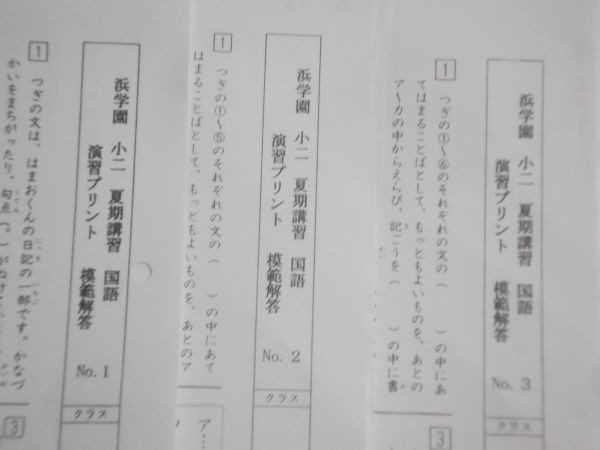 浜学園　小二　夏期講習　国語
演習プリント　模範解答
No. 1
クラス
1
つぎの文は、はまおくんの日記の一部です。かなづ
かいをまちがったり、句点(。)が
3
浜学園　小二　夏期講習　国語
演習プリント　模範解答
No. 2
クラス
1
つぎの①～⑤のそれぞれの文の(　　)の中にあて
はまることばとして、もっともよいものを、あとのア
ア
浜学園　小二　夏期講習　国語
演習プリント　模範解答
No. 3
クラス
1
つぎの①～⑥のそれぞれの文の(　　)の中にあ
てはまることばとして、もっともよいものを、あとの
ア～カの中からえらび、記ごうを(　　)の中に書
3